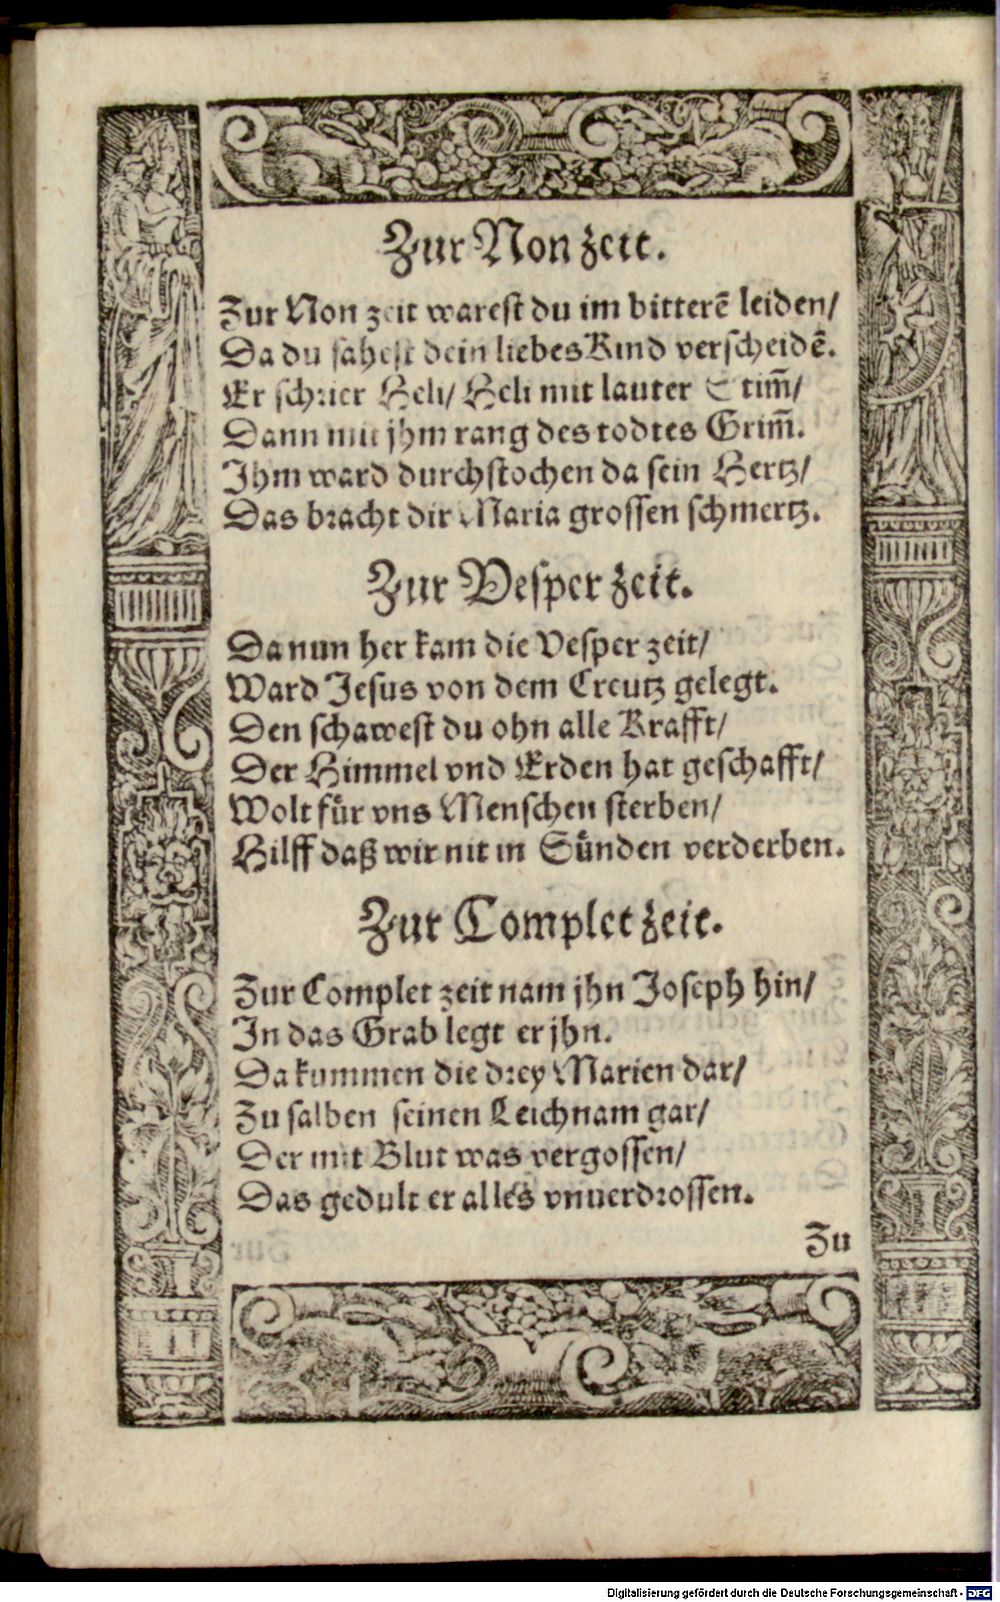 Zur Non zeit.
Zur Non zeit warest du im bitterẽ leiden/
Da du sahest dein liebes Kind verscheidẽ.
Er schrier Heli/ Heli mit lauter Stim̃/
Dann mit jhm rang des todtes Grim̃.
Ihm ward durchstochen da sein Hertz/
Das bracht dir Maria grossen schmertz.
Zur Vesper zeit.
Da nun her kam die Vesper zeit/
Ward Jesus von dem Creutz gelegt.
Den schawest du ohn alle Krafft/
Der Himmel vnd Erden hat geschafft/
Wolt für vns Menschen sterben/
Hilff daß wir nit in Sünden verderben.
Zur Complet zeit.
Zur Complet zeit nam jhn Joseph hin/
In das Grab legt er jhn.
Da kummen die drey Marien dar/
Zu salben seinen Leichnam gar/
Der mit Blut was vergossen/
Das gedult er alles vnuerdrossen.
Zu
Digitalisierung gefördert durch die Deutsche Forschungsgemeinschaft - DFG